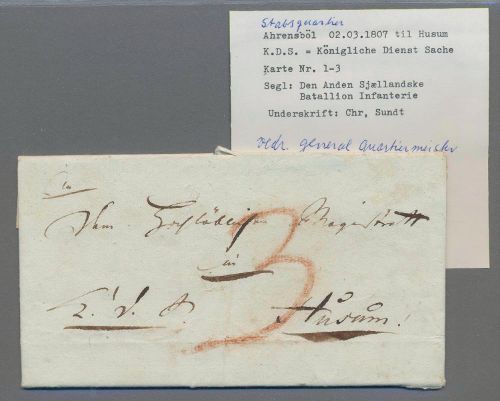 Stabsquartier
Ahrensböl 02.03.1807 til Husum
K.D.S. = Königliche Dienst Sache
Karte Nr. 1-3
Segl: Den Anden Sjællandske
Batallion Infanterie
Underskrift: Chr, Sundt
vedr. general Quartiermeister
An
Dem Hochlöblichen Magistratt
in
K. d. S. Husum!
3